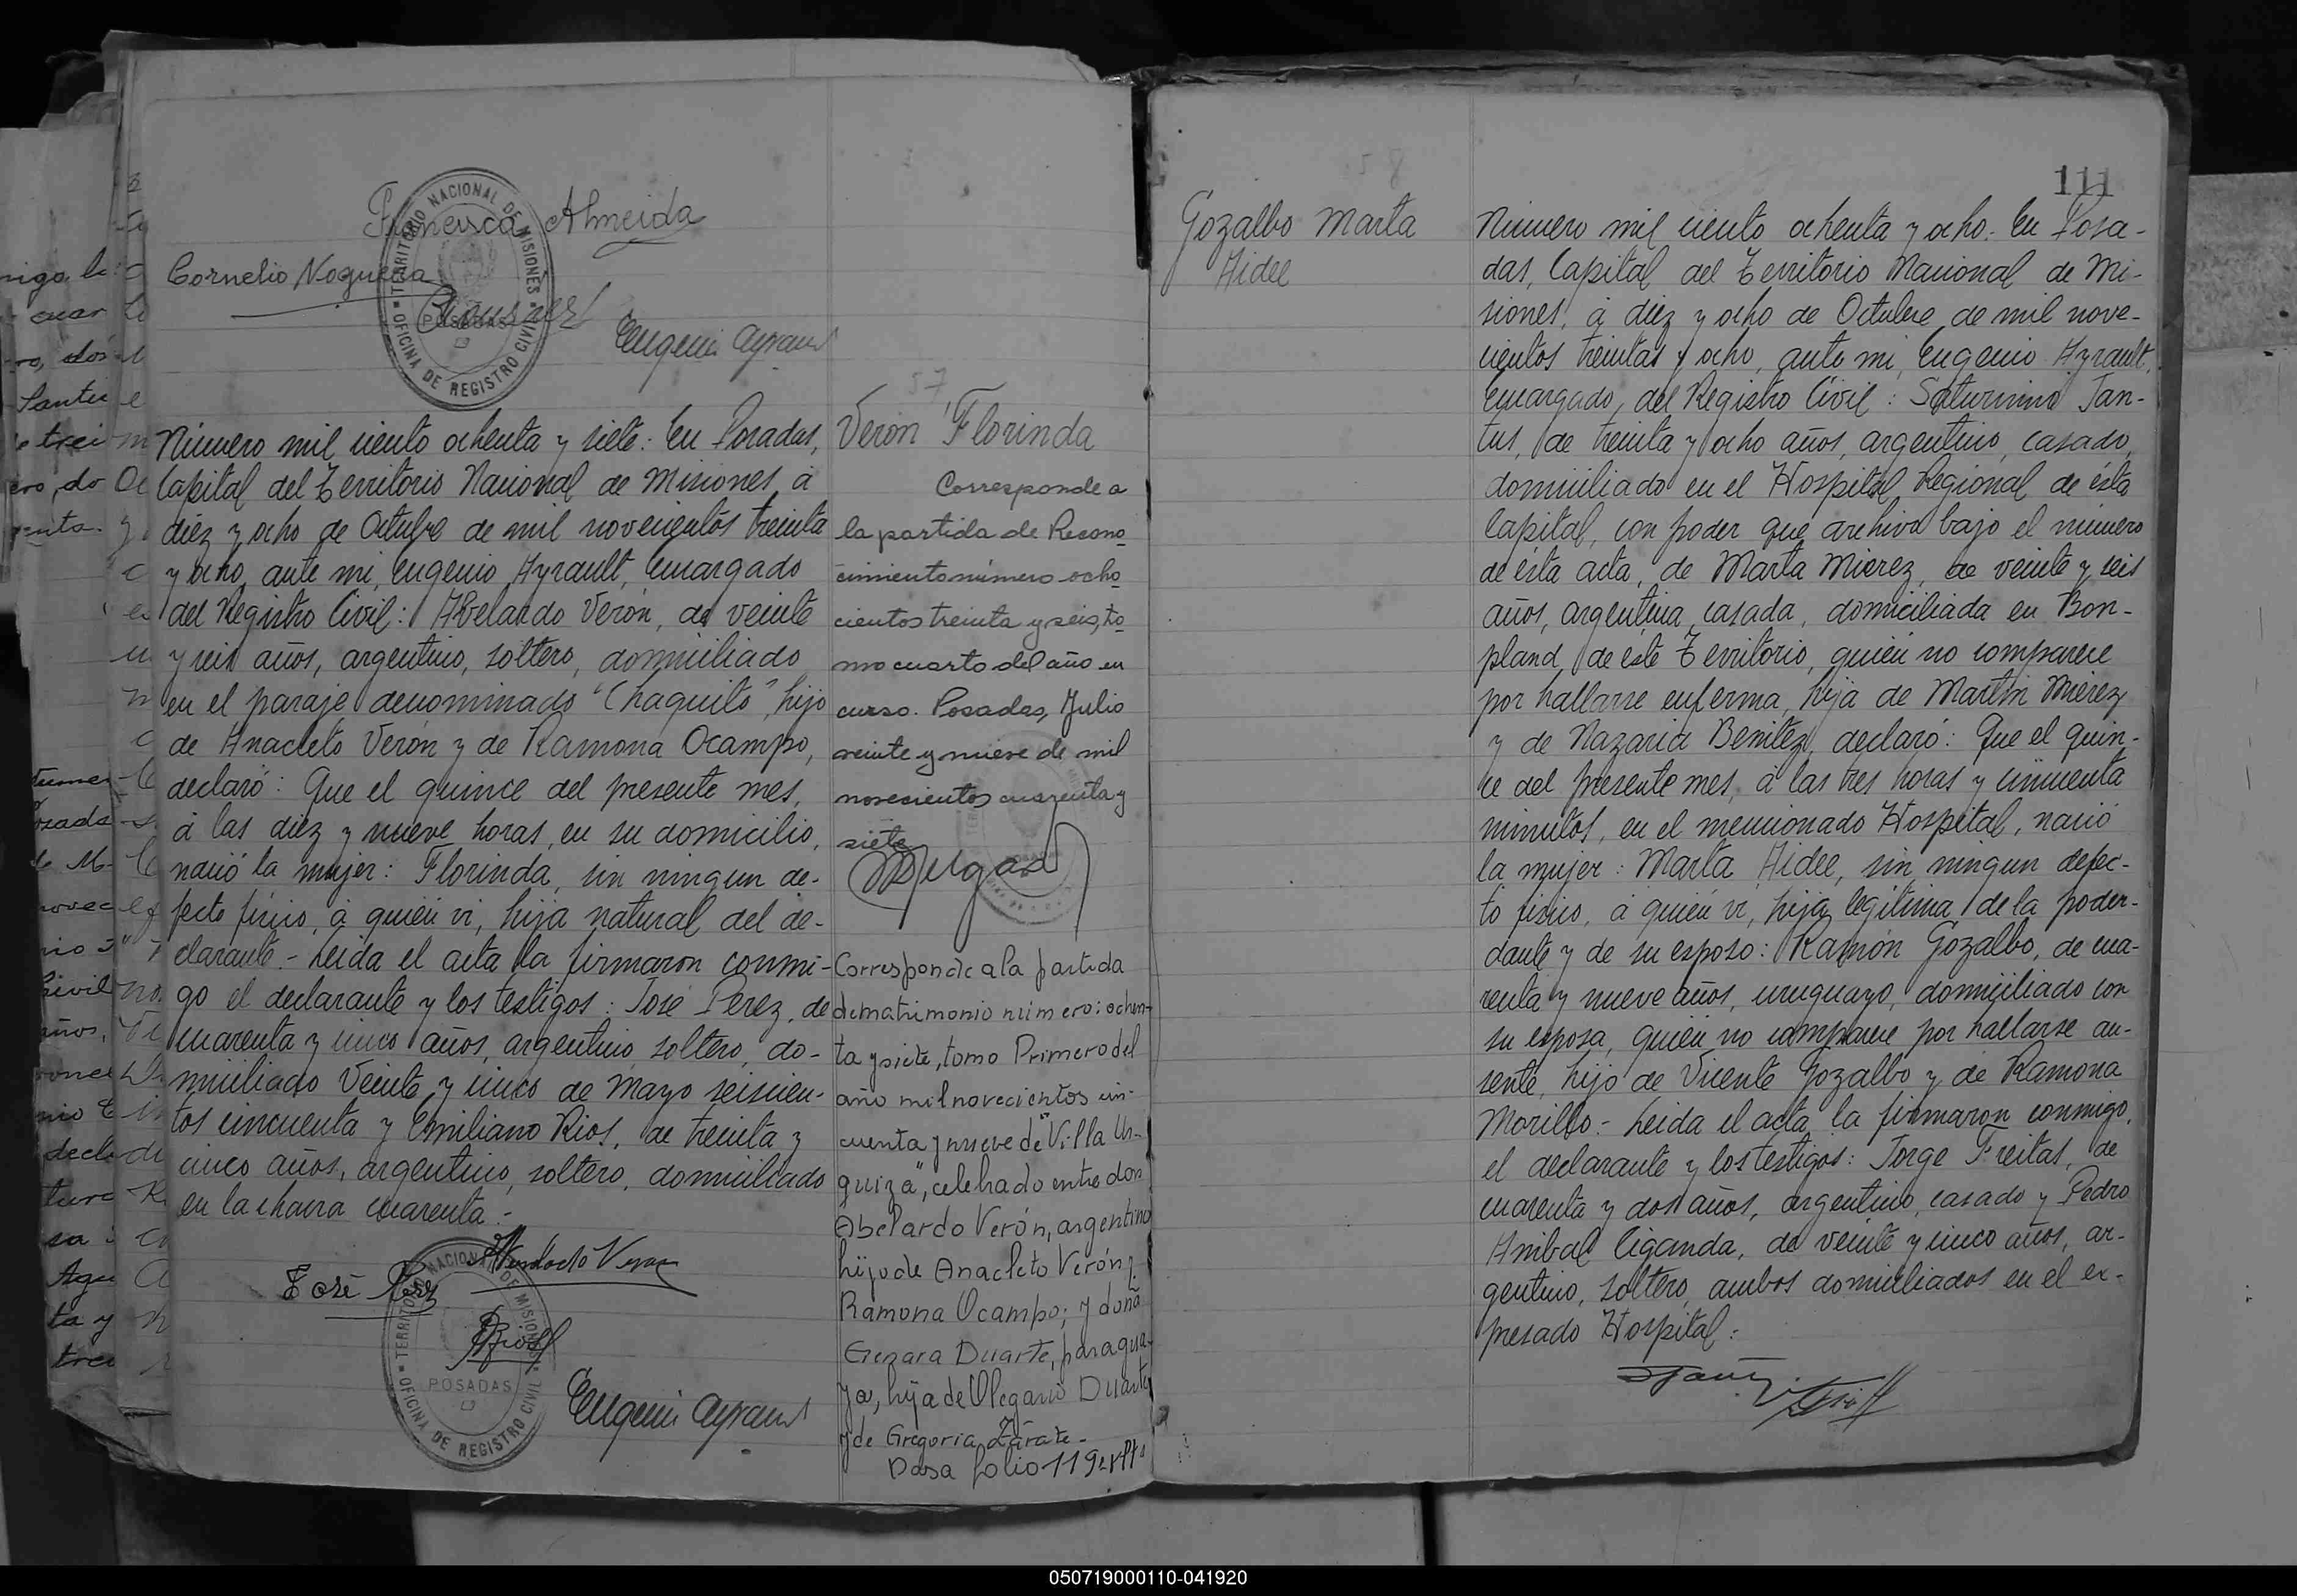 Francisca Almeida
Cornelio Noguera
Eugenio Ayrault
TERRITORIO NACIONAL DE MISIONES
OFICINA DE REGISTRO CIVIL
POSADAS
57
Número mil ciento ochenta y siete: En Posadas,
Capital del Territorio Nacional de Misiones, á
diez y ocho de Octubre de mil novecientos treinta
y ocho, ante mi, Eugenio Ayrault, Encargado
del Registro Civil: Abelardo Verón, de veinte
y seis años, argentino, soltero, domiciliado
en el paraje denominado "Chaquito", hijo
de Anacleto Verón y de Ramona Ocampo,
declaró: Que el quince del presente mes,
á las diez y nueve horas, en su domicilio,
nació la mujer: Florinda, sin ningun de-
fecto físico, á quién vi, hija natural del de-
clarante.- Leida el acta la firmaron conmi-
go el declarante y los testigos: José Perez, de
cuarenta y cinco años, argentino soltero, do-
miciliado Veinte y cinco de Mayo seiscien-
tos cincuenta y Emiliano Rios, de treinta y
cinco años, argentino, soltero, domiciliado
en la chacra cuarenta.-
José Perez
ERios
Eugenio Ayrault
TERRITORIO NACIONAL DE MISIONES
OFICINA DE REGISTRO CIVIL
POSADAS
Verón Florinda
Corresponde a
la partida de Recono-
cimiento número ocho
cientos treinta y seis, to-
mo cuarto del año en
curso. Posadas, Julio
veinte y nueve de mil
novecientos cuarenta y
siete
Corresponde a la partida
de matrimonio número: ochen-
ta y siete, tomo Primero del
año mil novecientos cin-
cuenta y nueve de "Villa Ur-
quiza", celebrado entre don
Abelardo Verón, argentino
hijo de Anacleto Verón y
Ramona Ocampo; y doña
Genara Duarte, paragua-
ya, hija de Olegario Duarte
y de Gregoria Zárate.-
Pasa folio 119
58
111
Gozalbo Marta
Aidee
Número mil ciento ochenta y ocho: En Posa-
das, Capital del Territorio Nacional de Mi-
siones, á diez y ocho de Octubre de mil nove-
cientos treintas y ocho, ante mi, Eugenio Ayrault,
Encargado, del Registro Civil: Saturnino Jan-
tus, de treinta y ocho años, argentino, casado,
domiciliado en el Hospital Regional de ésta
Capital, con poder que archivo bajo el número
de ésta acta, de Marta Mierez, de veinte y seis
años, argentina casada, domiciliada en Bon-
pland, de éste Territorio, quién no comparece
por hallarse enferma, hija de Martin Mierez
y de Nazaria Benitez, declaró: Que el quin-
ce del presente mes, á las tres horas y cincuenta
minutos, en el mencionado Hospital, nació
la mujer: Marta Aidee, sin ningun defec-
to físico, á quién vi, hija legítima de la poder-
dante y de su esposo: Ramón Gozalbo, de cua-
renta y nueve años, uruguayo, domiciliado con
su esposa, quién no comparece por hallarse au-
sente, hijo de Vicente Gozalbo y de Ramona
Morillo.- Leida el acta la firmaron conmigo,
el declarante y los testigos: Jorge Freitas, de
cuarenta y dos años, argentino, casado y Pedro
Anibal Ciganda, de veinte y cinco años, ar-
gentino, soltero, ambos domiciliados en el ex-
presado Hospital:
050719000110-041920